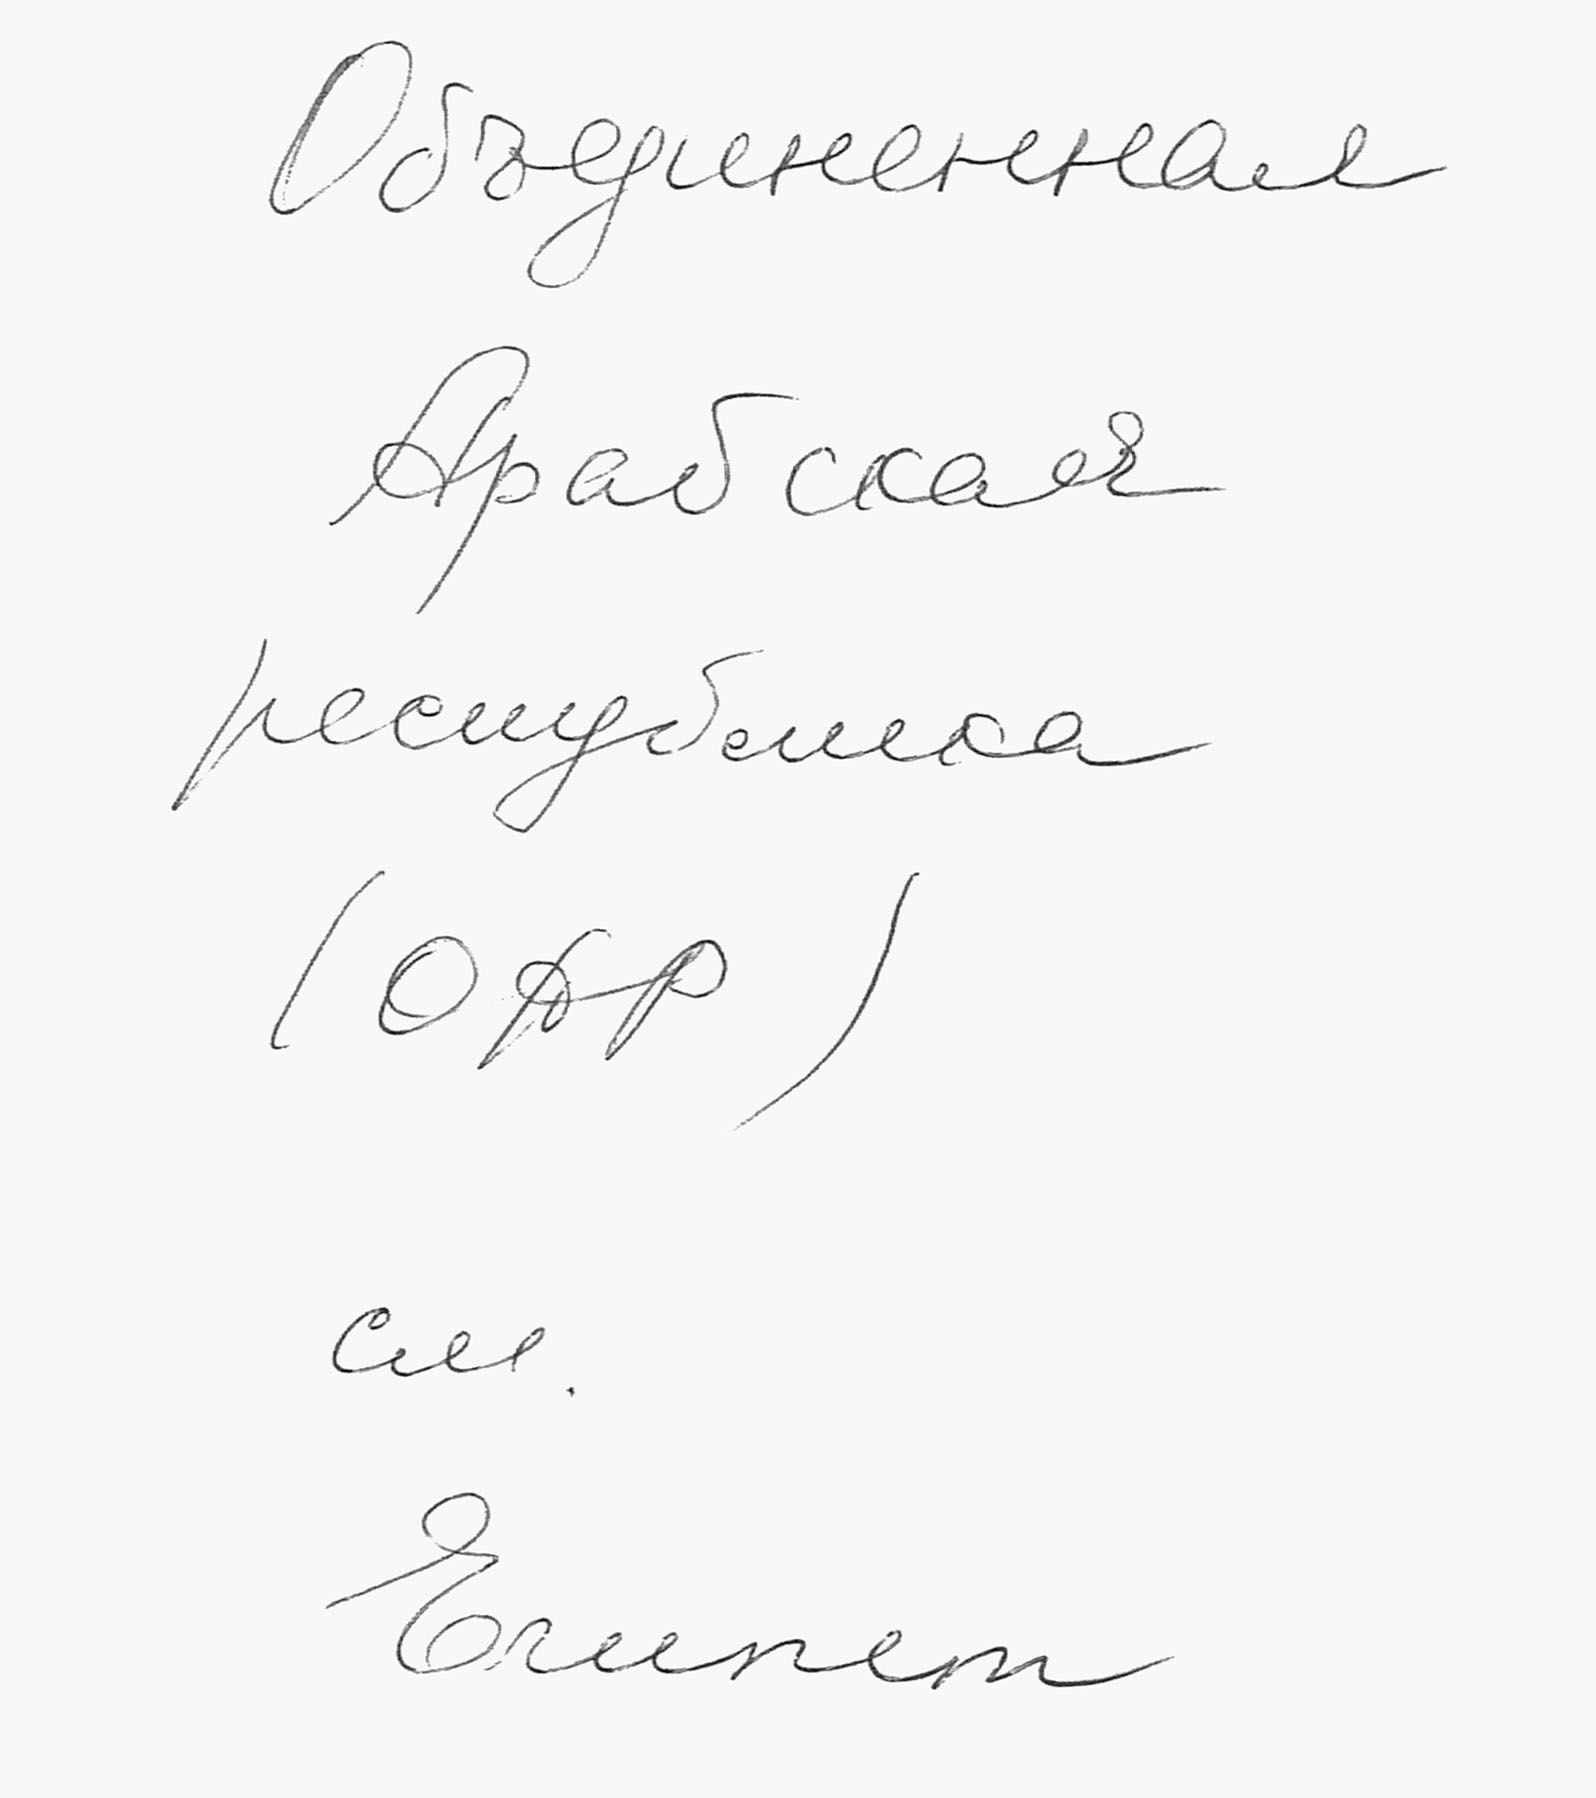 Объединенная
Арабская
республика
(ОАР)
см.
Египет